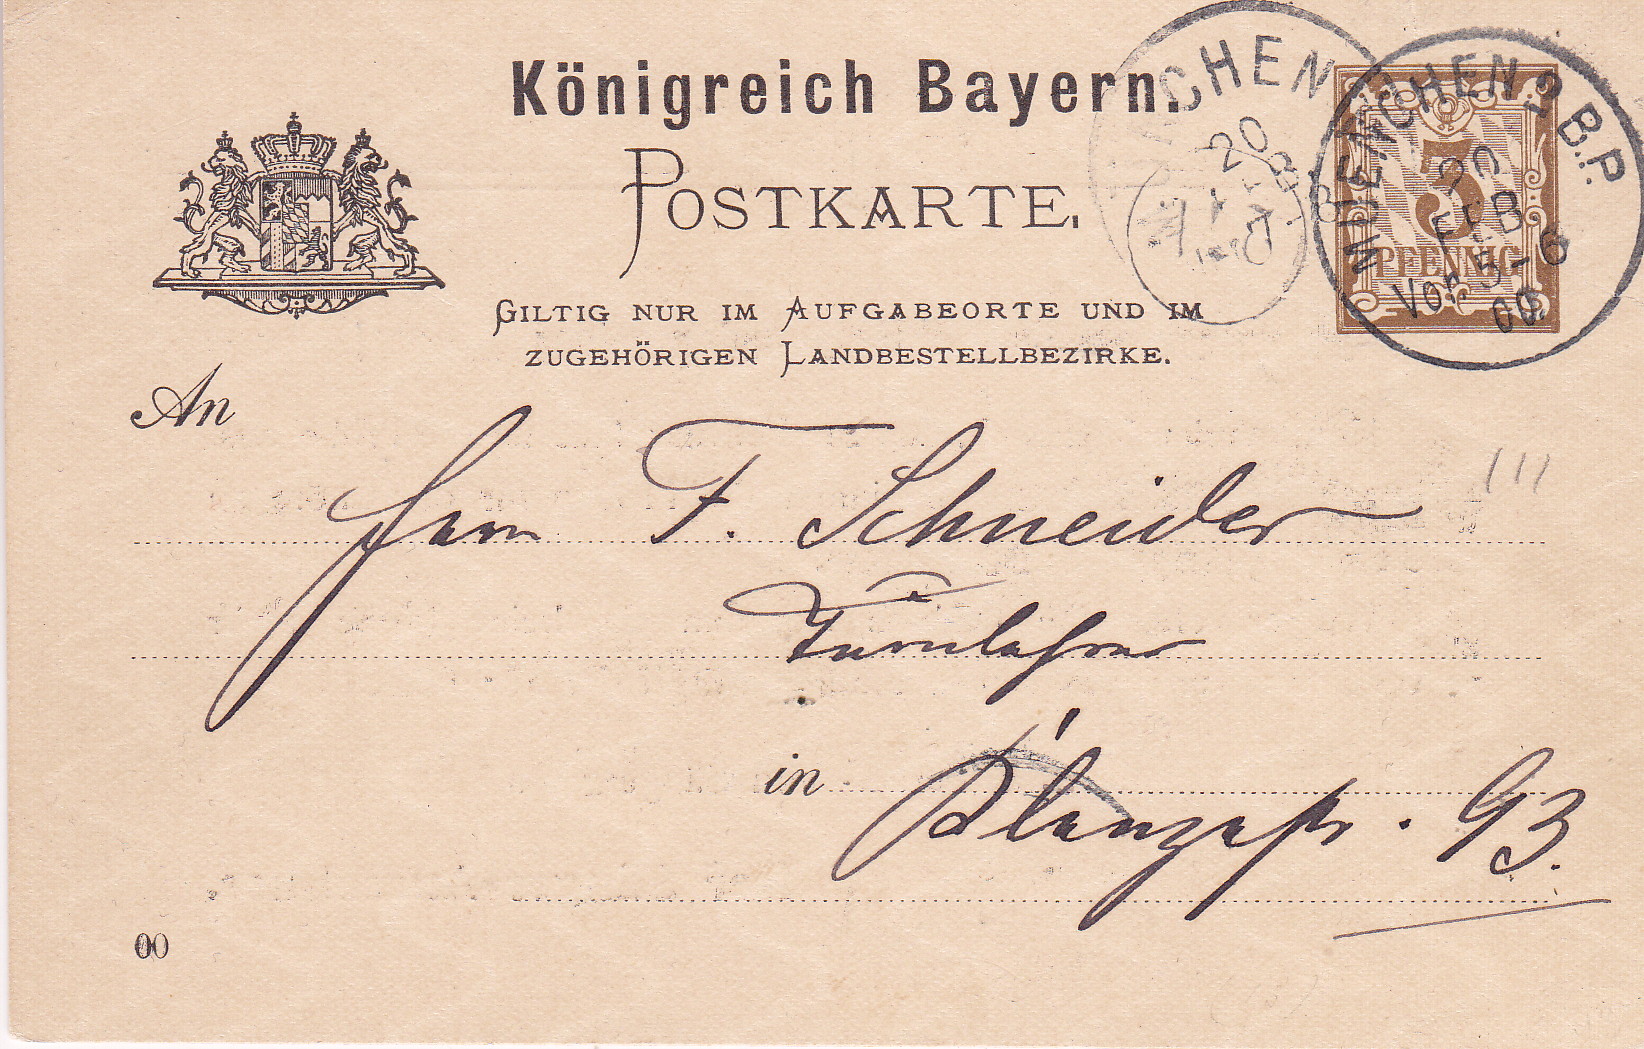 Königreich Bayern.
POSTKARTE.
GILTIG NUR IM AUFGABEORTE UND IM
ZUGEHÖRIGEN LANDBESTELLBEZIRKE.
MUENCHEN 2 B.P.
20
FEB
VOR 5-6
00
CHEN
20
3
PFENNIG
An
Herrn F. Schneider
Turnlehrer
in
93.
00